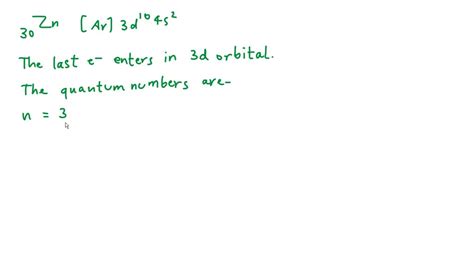 ₃₀Zn [Ar] 3d¹⁰ 4s²
The last e⁻ enters in 3d orbital.
The quantum numbers are-
n = 3